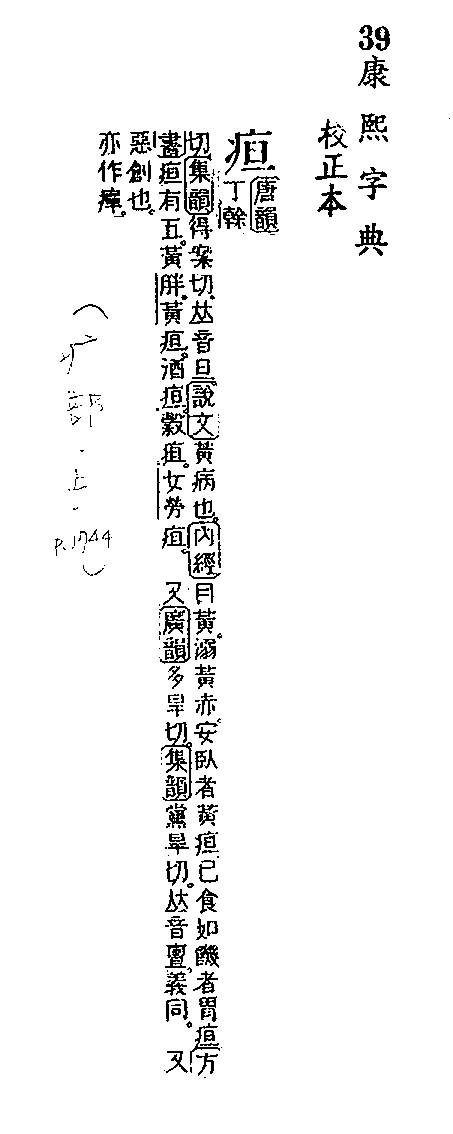 39 康熙字典
校正本
疸
唐韻
丁幹
切集韻得案切𠀤音旦說文黃病也內經目黃溺黃赤安臥者黃疸已食如饑者胃疸方
書疸有五黃胖黃疸酒疸穀疸女勞疸 又廣韻多旱切集韻黨旱切𠀤音亶義同 又
惡創也
亦作癉
(疒部.上.
P.1744)